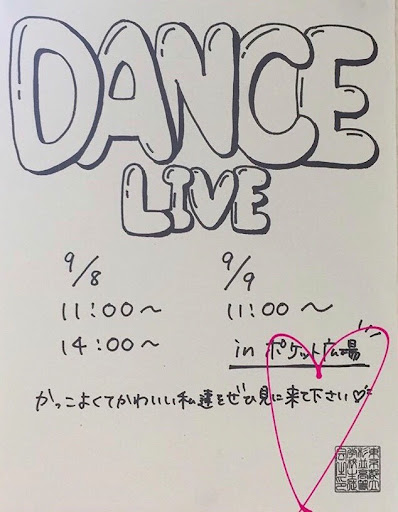 DANCE
LIVE
9/8
11:00～
14:00～
9/9
11:00～
in ポケット広場
かっこよくてかわいい私達をぜひ見に来て下さい♡